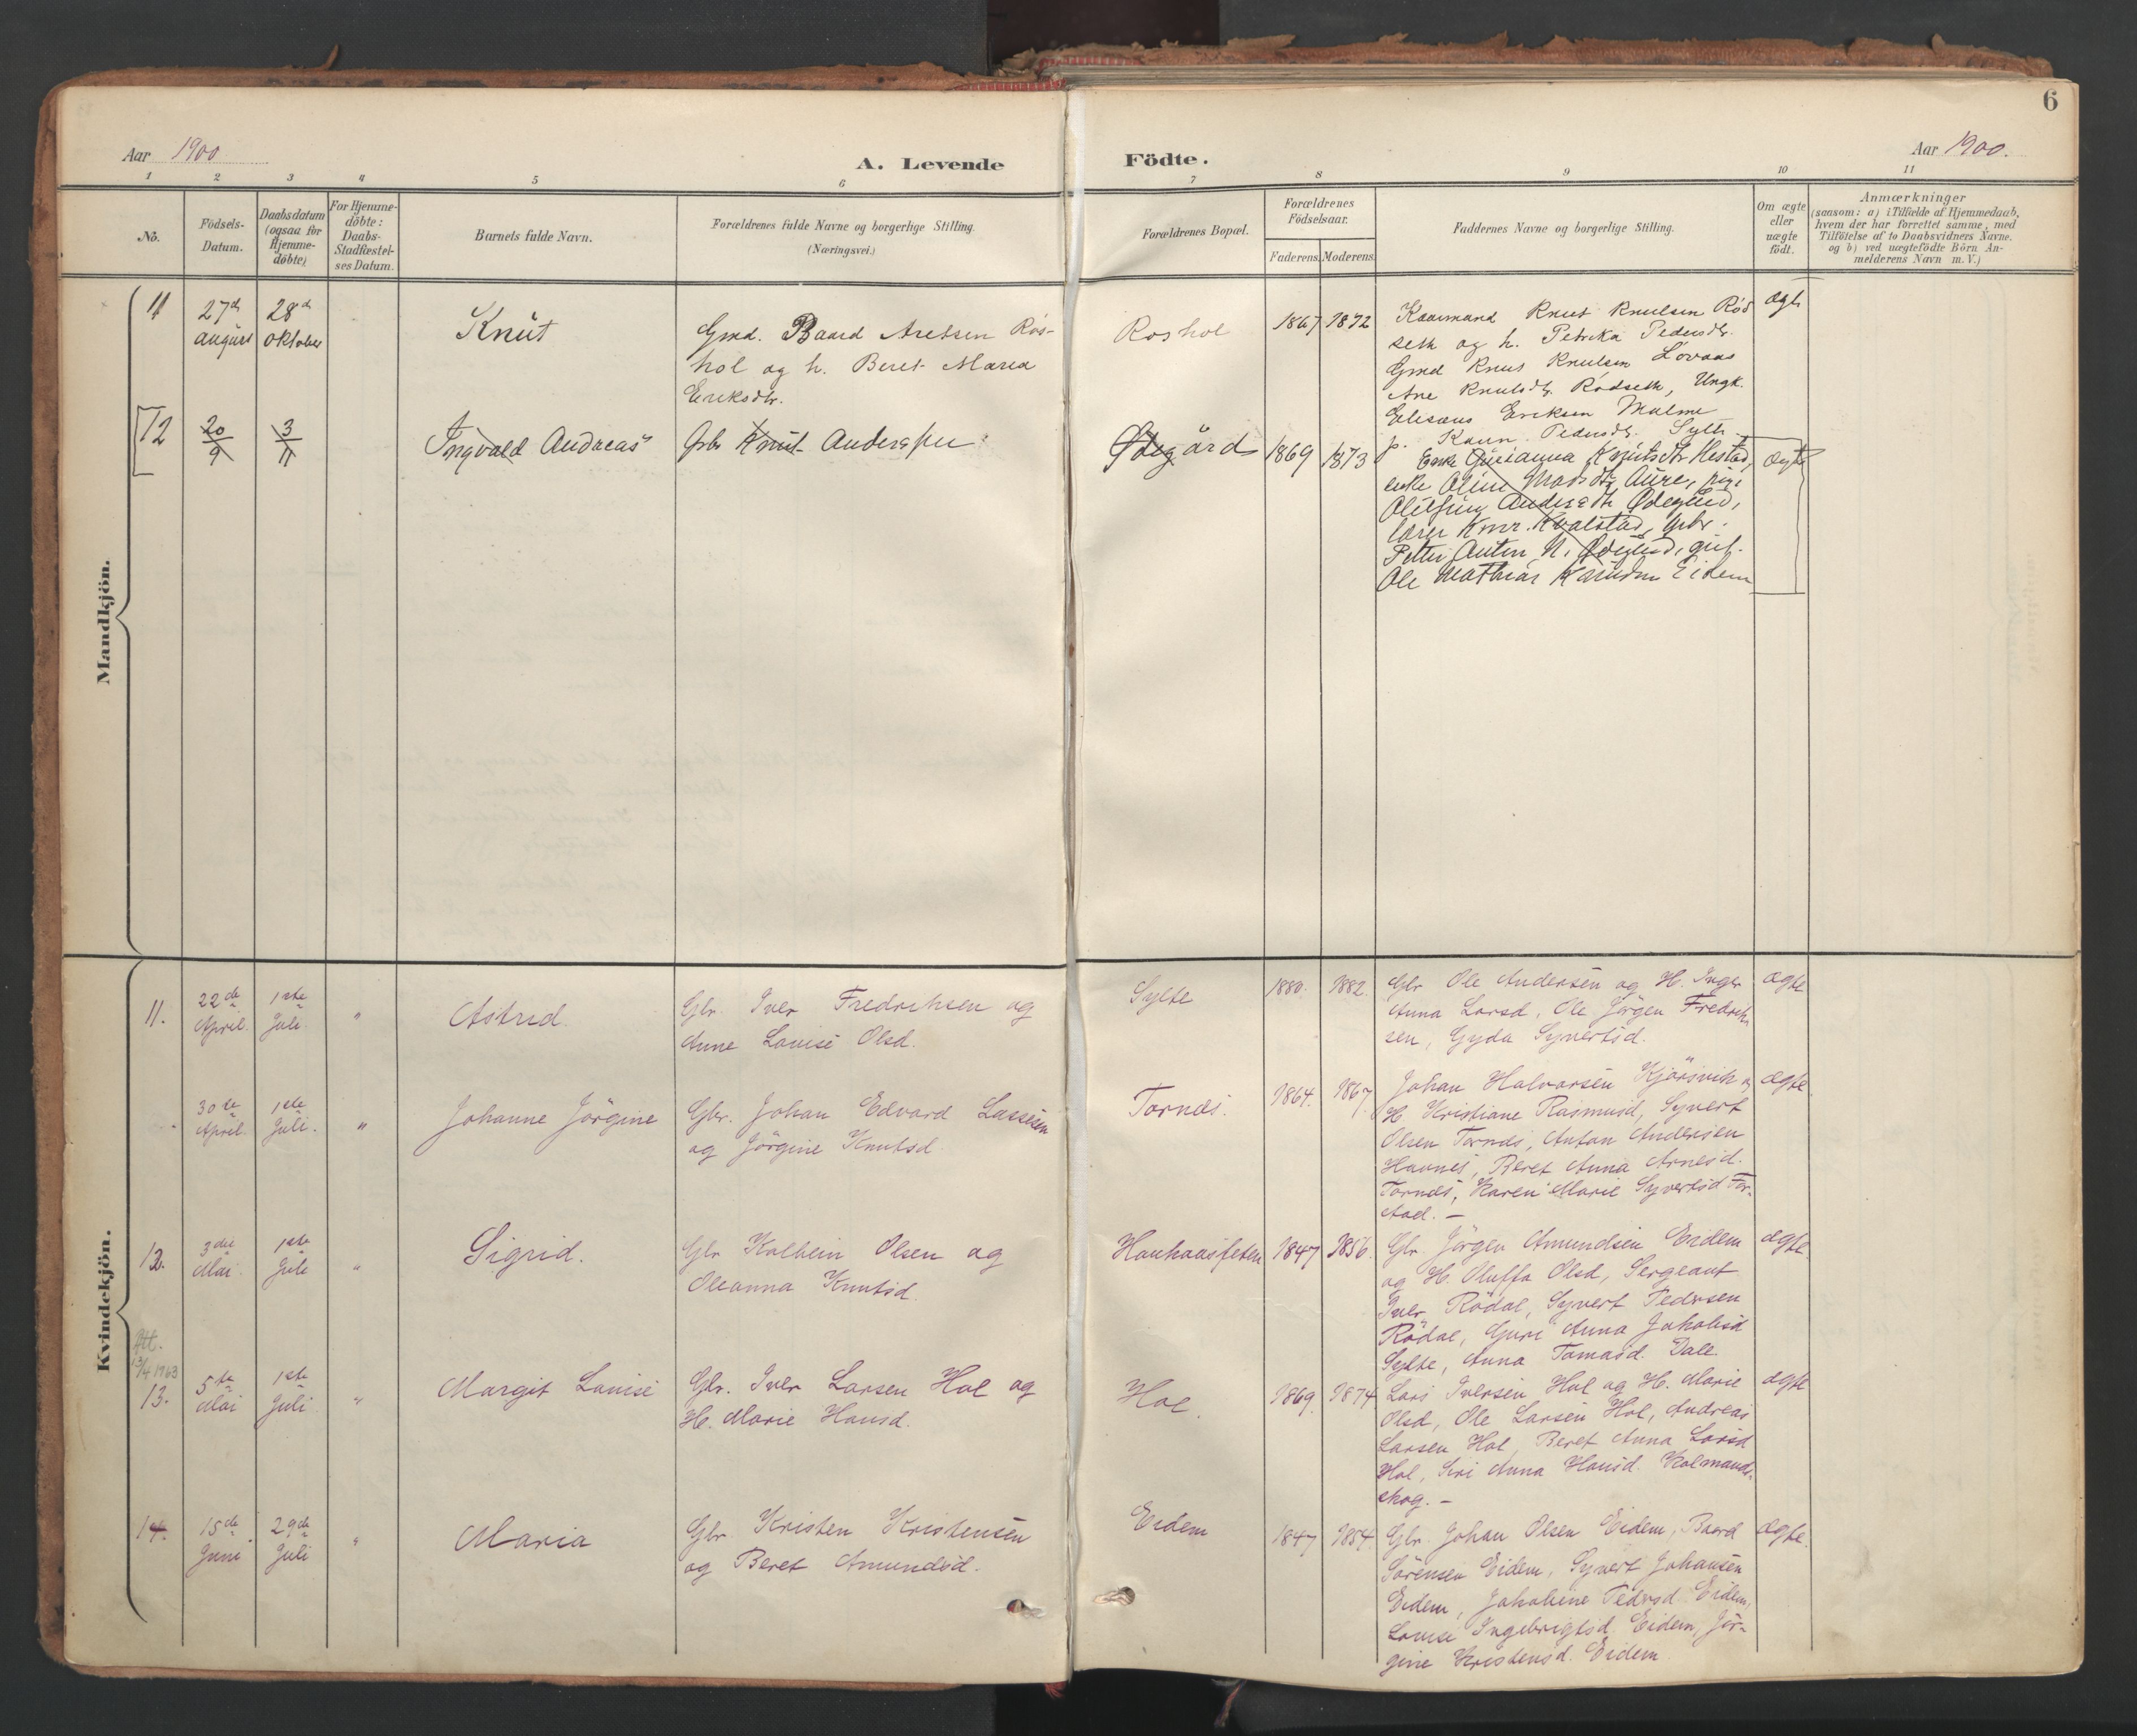 6
Aar 1900
A. Levende
Födte.
Aar 1900.
1 2 3 4 5 6 7 8 9 10 11
No.
Födsels-
Datum.
Daabsdatum
(ogsaa for
Hjemme-
döbte)
For Hjemme-
döbte:
Daabs-
Stadfæstel-
ses Datum.
Barnets fulde Navn.
Forældrenes fulde Navne og borgerlige Stilling.
(Næringsvei.)
Forældrenes Bopæl.
Forældrenes
Födselsaar.
Faderens.
Moderens.
Faddernes Navne og borgerlige Stilling.
Om ægte
eller
uægte
födt.
Anmærkninger
(saasom: a) i Tilfælde af Hjemmedaab,
hvem der har forrettet samme, med
Tilföielse af to Daabsvidners Navne.
og b) ved uægtefödte Börn An-
melderens Navn m. V.)
Mandkjön.
11
27de
august
28de
oktober
Knut
Gmd. Baard Aretsen Ros-
hol og h. Beret Maria
Eriksdtr.
Roshol
1867 1872
Kaarmand Knut Knutsen Rød
seth og h. Petrika Pedersdtr.
Gmd Knut Knutsen Lovaas
Ane Knutsdtr. Rødseth, Ungk.
Eliseus Eriksen Malme
p. Karen Pedersdtr. Sylte
ægte
12
20/9
3/11
Ingvald Andreas
Gbr Knut Andersen
Ødegård
1869 1873
Enke Gurianna Knutsdtr Hestad,
enke Oline Madsdtr Aure, pige
Andersdtr Ødegård,
lærer Knut Kvalstad, Gbr.
Petter Anton N. Ødegård, gut
Ole Mathias Knudsen Eidem
Ægte
Kvindekjön.
11.
22de
April.
1ste
Juli.
"
Astrid.
Gbr. Iver Fredriksen og
Anne Louise Olsd.
Sylte
1880. 1882.
Gbr Ole Andersen og H. Inger
Anna Larsd, Ole Jörgen Fredrik-
sen, Gyda Syvertsd.
Ægte
30te
April
1ste
Juli.
"
Johanne Jörgine
Gbr. Johan Edvard Lassesen
og Jörgine Knutsd.
Tornes.
1864. 1867
Johan Halvorsen Kjörsvik og
H Kristiane Rasmusd, Syvert
Olsen Tornes, Anton Andersen
Havnes, Beret Anna Arnesd.
Tornes, Karen Marie Syvertsd For-
stad. -
Ægte
12.
3die
Mai.
1ste
Juli
"
Sigrid.
Gbr Kolbein Olsen og
Oleanna Knutsd.
Haukaasfeten
1847 1856.
Gbr. Jörgen Amundsen Eidem
og H. Oluffa Olsd, Sergeant
Iver Rödal, Syvert Pedersen
Rödal, Guri Anna Jakobsd
Sylte, Anna Tomasd. Dale.
Ægte
Att.
13/4 1963
13.
5te
Mai
1ste
Juli
"
Margit Louise
Gbr. Iver Larsen Hol og
H. Marie Hansd.
Hol.
1869. 1874.
Lars Iversen Hol og H. Marie
Olsd, Ole Larsen Hol, Andreas
Larsen Hol, Beret Anna Larsd
Hol, Siri Anna Hansd. Kolmands-
skog. -
Ægte
14.
15de
Juni
29de
Juli
"
Maria
Gbr. Kristen Kristensen
og Beret Amundsd.
Eidem
1847 1854.
Gbr. Johan Olsen Eidem, Baard
Sörensen Eidem, Syvert Johansen
Eidem, Jakobine Pedersd. Eidem,
Louise Ingebrigtsd. Eidem, Jör-
gine Kristensd. Eidem
Ægte.